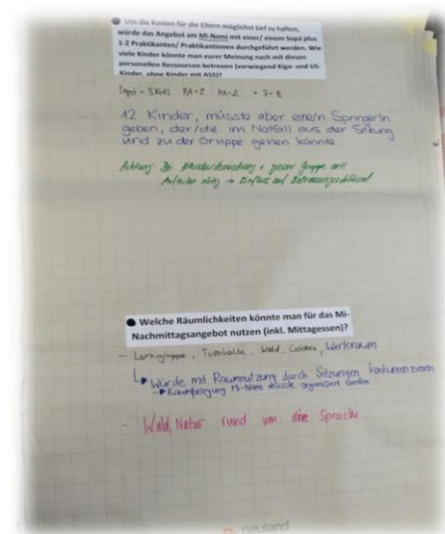 ● Um die Kosten für die Eltern möglichst tief zu halten,
würde das Angebot am Mi-Nami mit einer/ einem Sopä plus
1-2 Praktikanten/ Praktikantinnen durchgeführt werden. Wie
viele Kinder könnte man eurer Meinung nach mit diesen
personellen Ressourcen betreuen (vorwiegend Kiga- und US-
Kinder, ohne Kinder mit ASS)?
Sopä = 3 Kids PA = 2 PA = 2 = 7-8
12 Kinder, müsste aber eine/n SpringerIn
geben, der/die im Notfall aus der Sitzung
und zu der Gruppe gehen könnte.
Achtung: Bei + grosser Gruppe
nötig → Einfluss auf
● Welche Räumlichkeiten könnte man für das Mi-
Nachmittagsangebot nutzen (inkl. Mittagessen)?
- Lerngruppe, Turnhalle, Wald, Cafeteria, Werkraum
↳ Würde mit Raumnutzung durch Sitzungen konkurrenzieren
→ Raumbelegung Mi-Nami müsste organisiert werden
- Wald, Natur rund um die Sprache
neuland